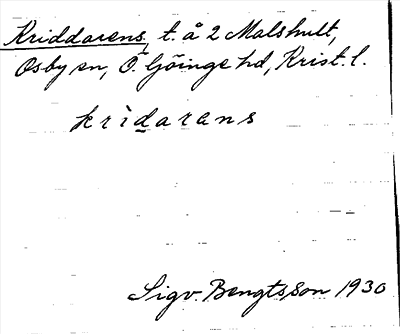 Kriddarens, t. å 2 Malshult,
Osby sn, Ö. Göinge hd, Krist. l.
krìdarens
Sigv. Bengtsson 1930